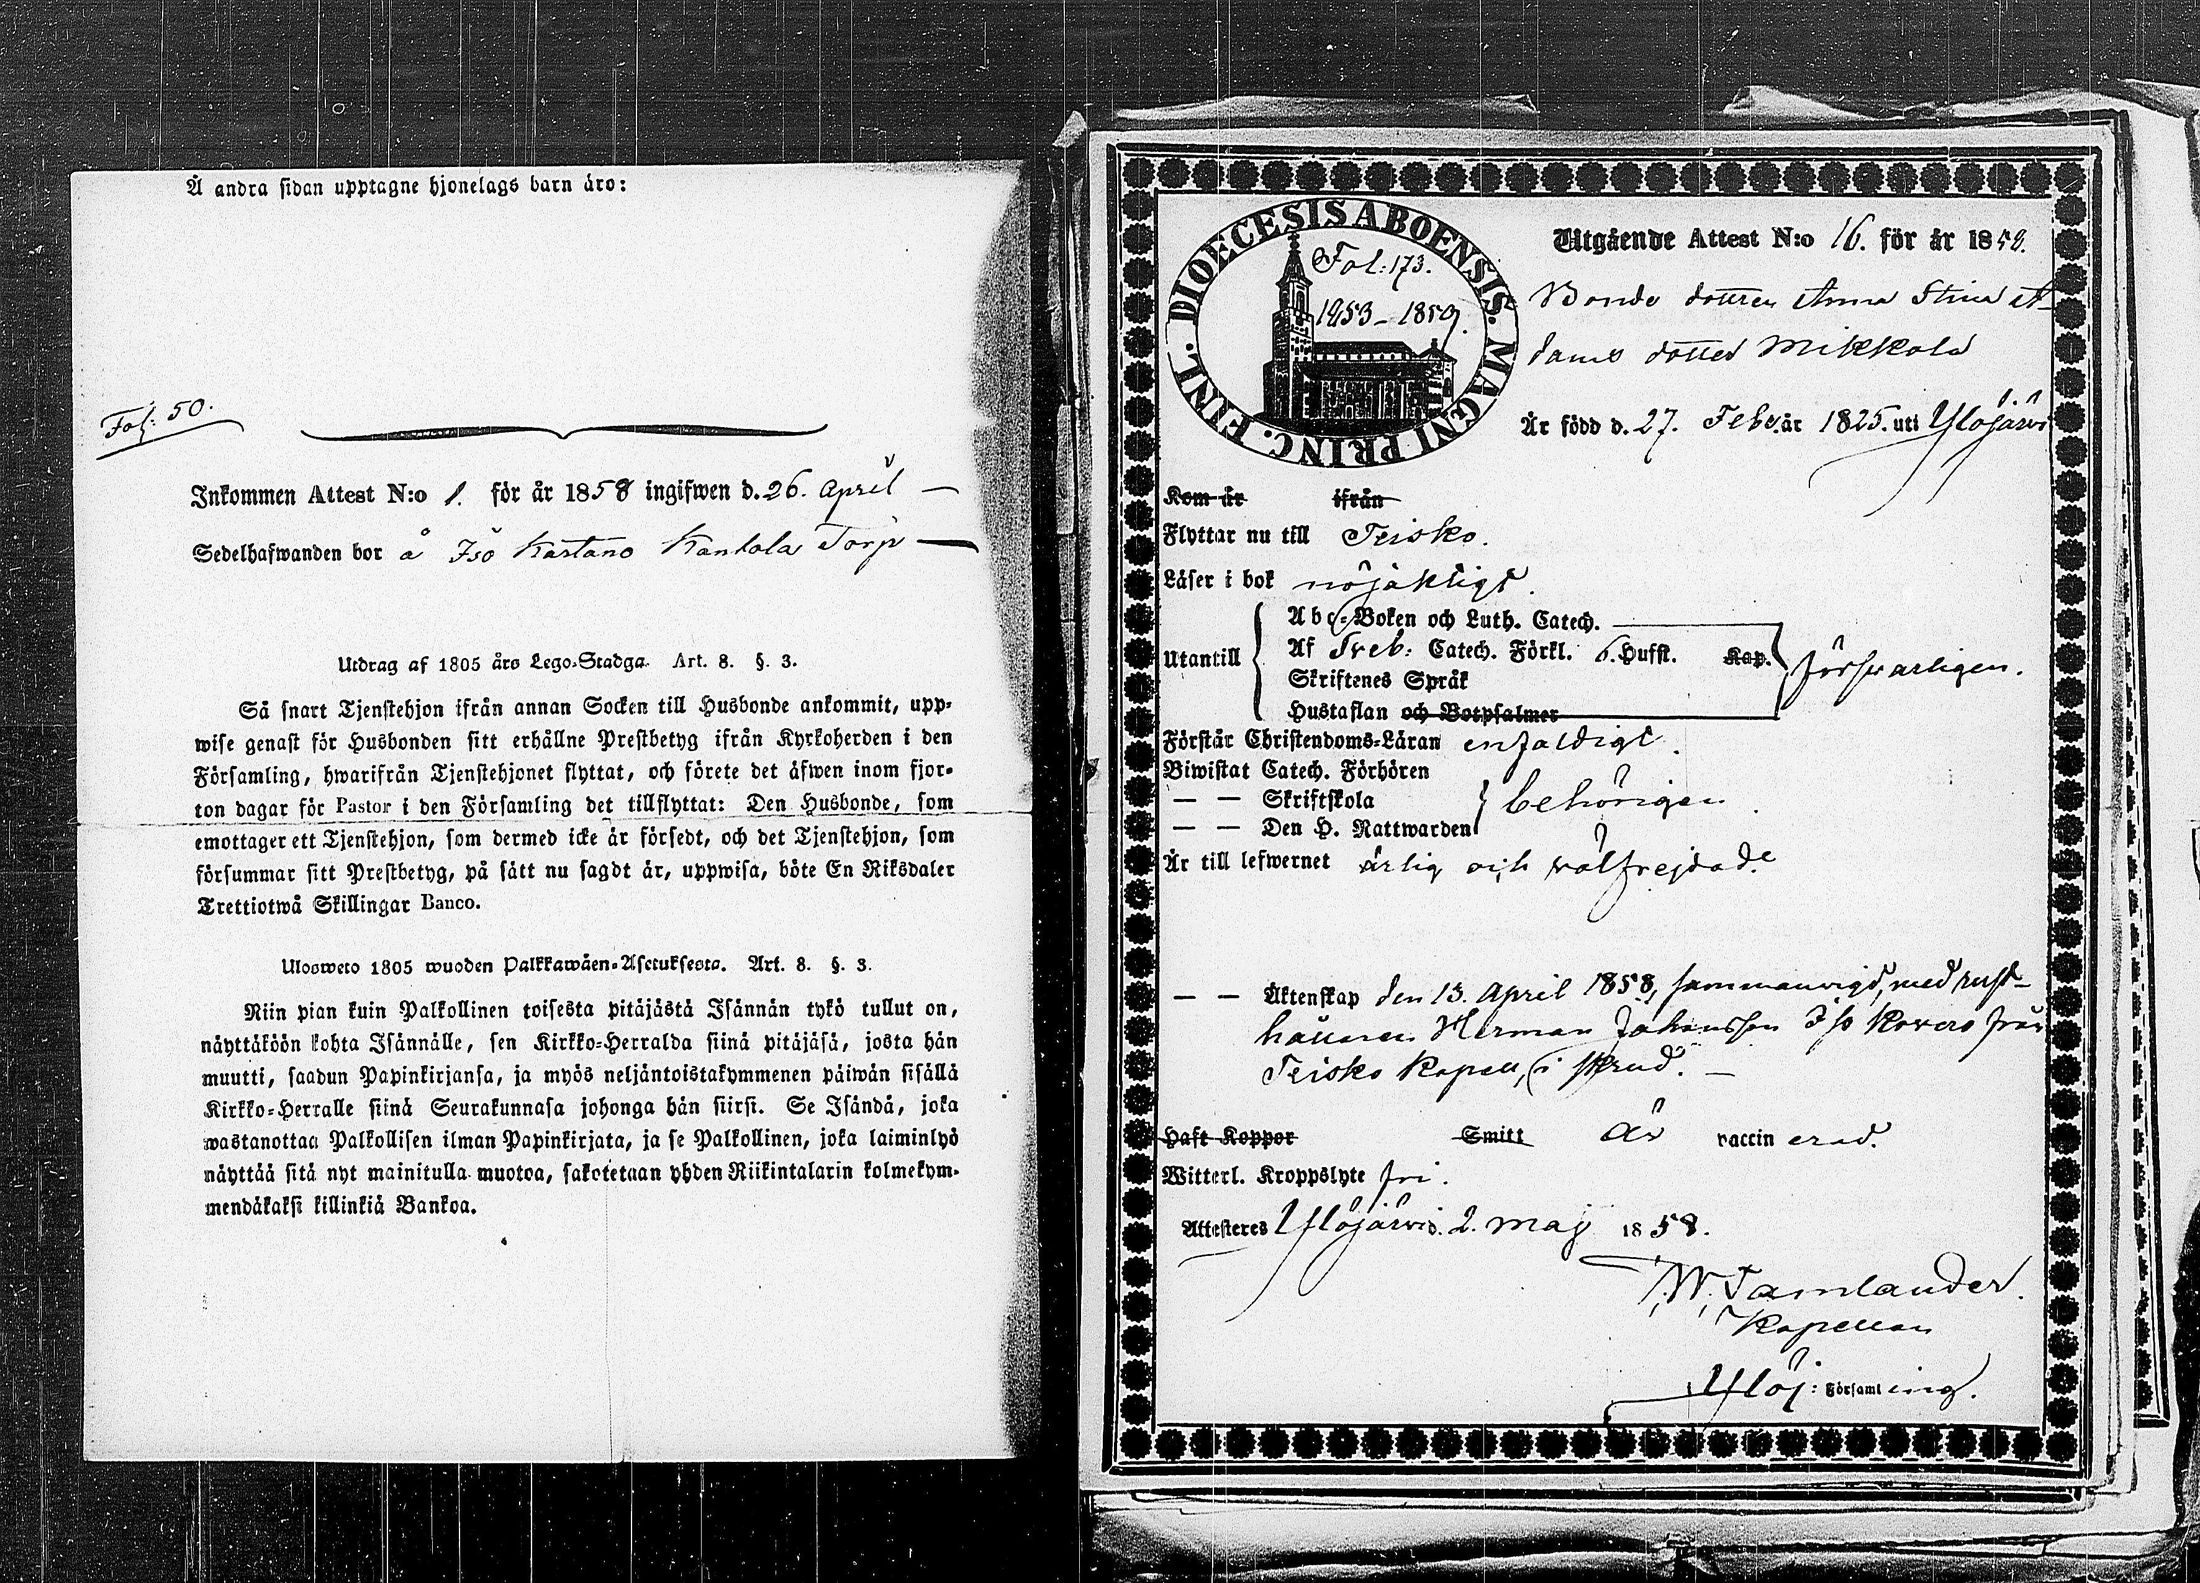 Å andra sidan upptagne hjonelags barn äro:
Fol: 50.
Inkommen Attest N:o 1. för år 1858 ingifwen d. 26. April
Sedelhafwanden bor å Iso Kartano Kankola Torp
Utdrag af 1805 års Lego-Stadga. Art. 8. §. 3.
Så snart Tjenstehjon ifrån annan Socken till Husbonde ankommit, upp-
wise genast för Husbonden sitt erhållne Prestbetyg ifrån Kyrkoherden i den
Församling, hwarifrån Tjenstehjonet flyttat, och förete det äfwen inom fjor-
ton dagar för Pastor i den Församling det tillflyttat: Den Husbonde, som
emottager ett Tjenstehjon, som dermed icke är försedt, och det Tjenstehjon, som
försummar sitt Prestbetyg, på sätt nu sagdt är, uppwisa, böte En Riksdaler
Trettiotwå Skillingar Banco.
Ulosweto 1805 wuoden Palkkawäen-Asetuksesta. Art. 8. §. 3.
Niin pian kuin Palkollinen toisesta pitäjästä Isännän tykö tullut on,
näyttäköön kohta Isännälle, sen Kirkko-Herralda siinä pitäjäsä, josta hän
muutti, saadun Papinkirjansa, ja myös neljäntoistakymmenen päiwän sisällä
Kirkko-Herralle siinä Seurakunnasa johonga hän siirsi. Se Isändä, joka
wastanottaa Palkollisen ilman Papinkirjata, ja se Palkollinen, joka laiminlyö
näyttää sitä nyt mainitulla muotoa, sakotetaan yhden Riikintalarin kolmekym-
mendäkaksi killinkiä Bankoa.
DIOECESIS ABOENSIS. MAGNI PRINC. FINL.
Fol: 173.
1853-1859.
Utgående Attest N:o 16. för år 1858.
Bonde dottren Anna Stina A-
dams dotter Mikkola
Är född d. 27. Feb. år 1825. uti Ylöjärvi
Kom år ifrån
Flyttar nu till Teisko.
Läser i bok nöjaktigt.
Utantill
Abc-Boken och Luth. Catech.
Af Sveb: Catech. Förkl. 6. Hufst. Kap.
Skriftenes Språk
Hustaflan och Botpsalmer
försvarligen.
Förstår Christendoms-Läran enfaldigt.
Biwistat Catech. Förhören
— — Skriftskola
— — Den H. Nattwarden
behörigen.
Är till lefwernet ärlig och välfrejdad.
— — Äktenskap den 13. April 1858, sammanvigd, med rust-
hållaren Herman Johansson Iso Kovero från
Teisko Kapell, i Mrud.
Haft Koppor Smitt Är vaccinerad.
Witterl. Kroppslyte fri.
Attesteres Ylöjärvi d. 2. Maj 1858.
W. Tamlander.
Kapellan
Ylöj: Församling.